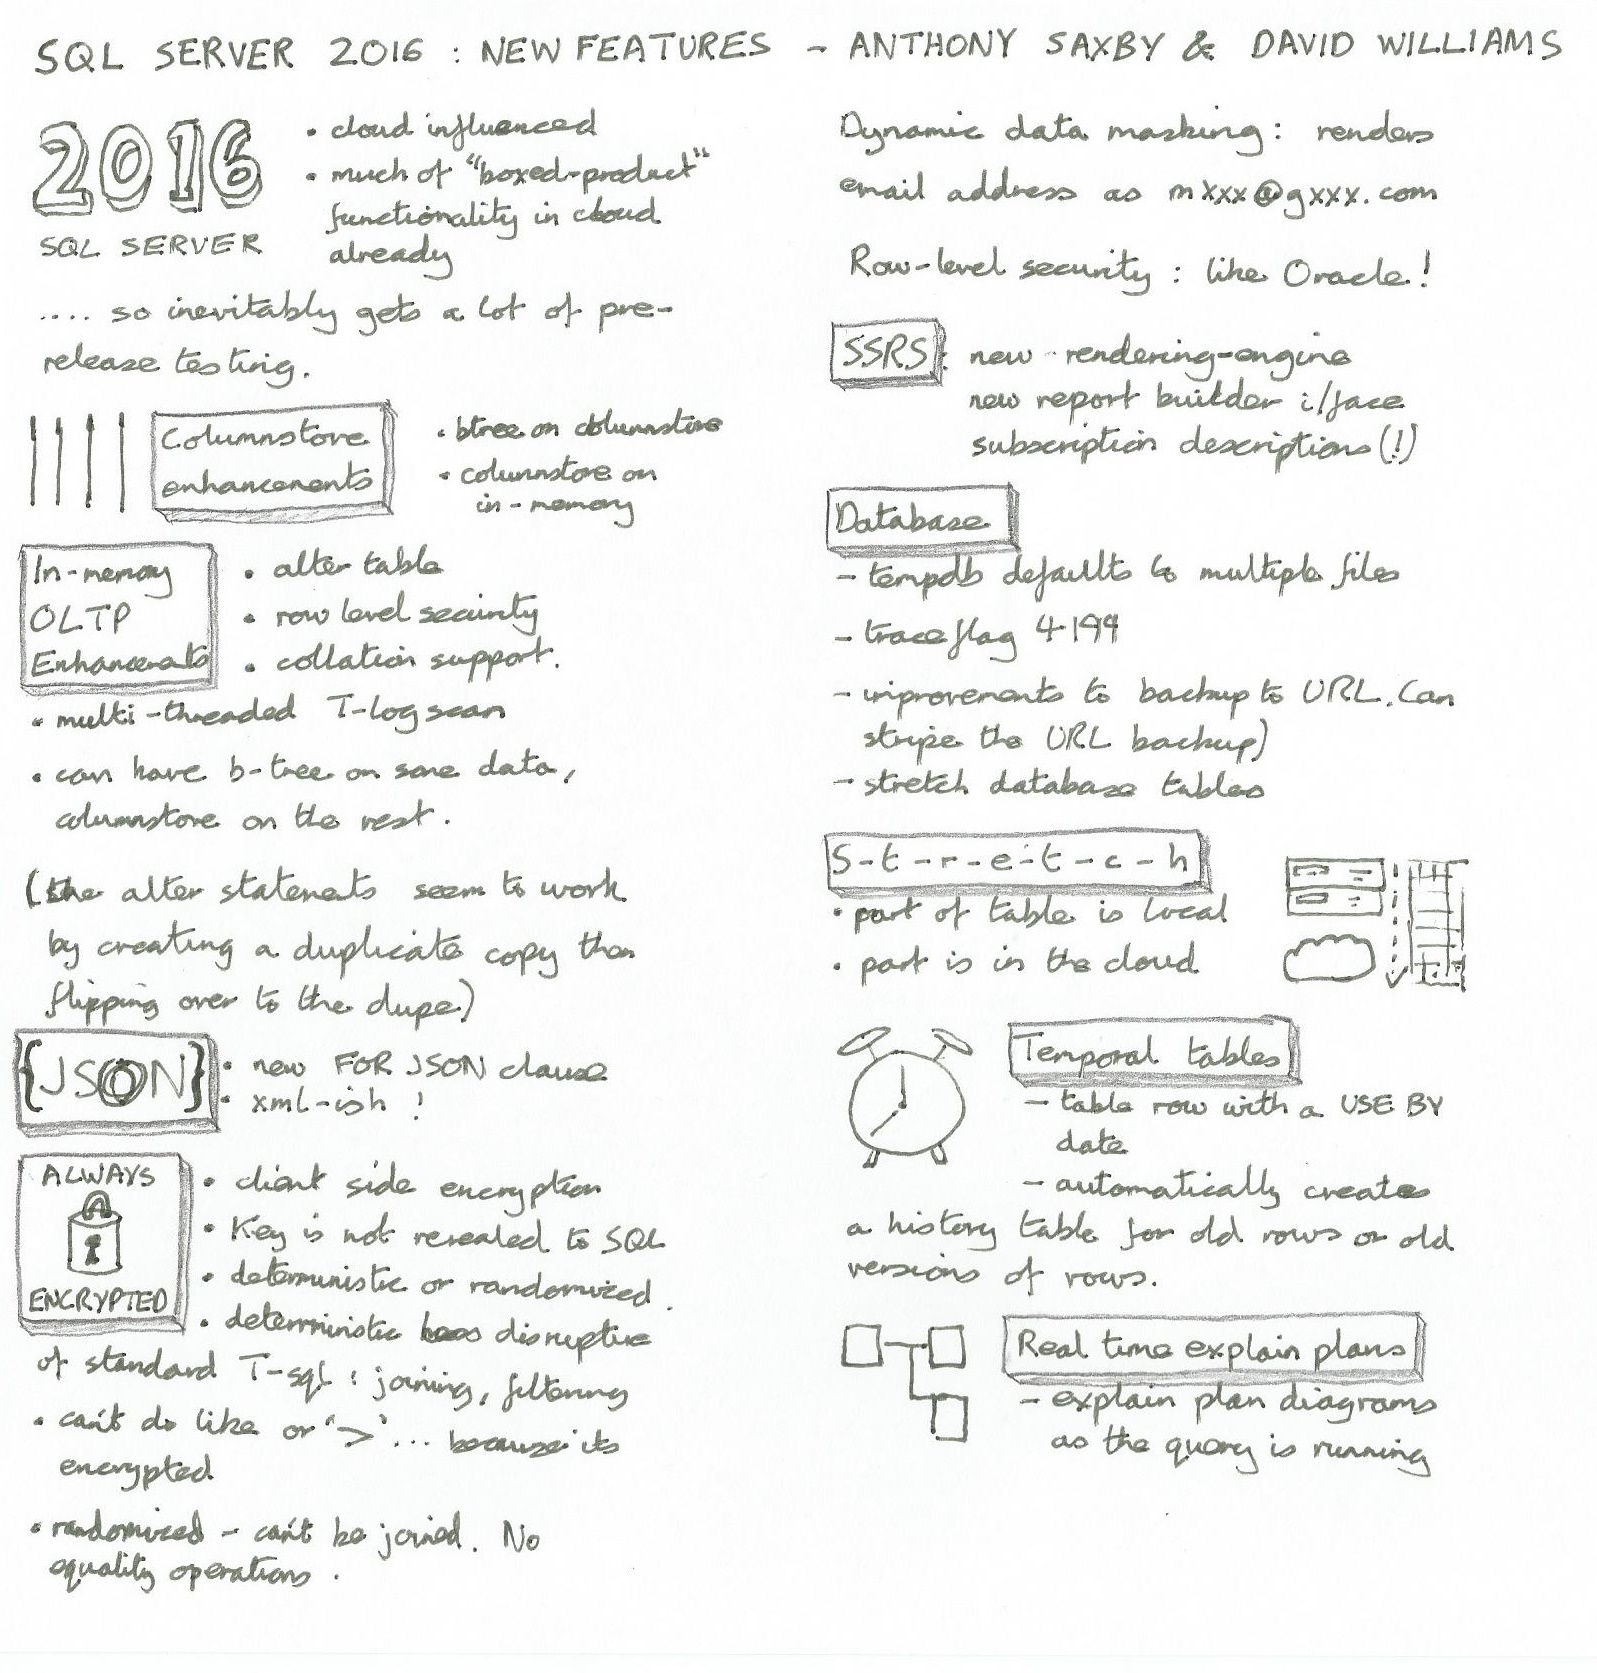 SQL SERVER 2016 : NEW FEATURES - ANTHONY SAXBY & DAVID WILLIAMS
2016
SQL SERVER
• cloud influenced
• much of "boxed-product"
functionality in cloud
already
.... so inevitably gets a lot of pre-
release testing.
Columnstore
enhancements
• btree on columnstore
• columnstore on
in-memory
In-memory
OLTP
Enhancements
• alter table
• row level security
• collation support.
• multi-threaded T-log scan
• can have b-tree on some data,
columnstore on the rest.
(the alter statements seem to work
by creating a duplicate copy then
flipping over to the dupe)
{JSON}
• new FOR JSON clause
• xml-ish !
ALWAYS
ENCRYPTED
• client side encryption
• Key is not revealed to SQL
• deterministic or randomized.
• deterministic less disruptive
of standard T-sql : joining, filtering
• can't do like or '>'... because its
encrypted
• randomized - can't be joined. No
equality operations.
Dynamic data masking: renders
email address as mxxx@gxxx.com
Row-level security : like Oracle!
SSRS: new rendering-engine
new report builder i/face
subscription descriptions(!)
Database
- tempdb defaults to multiple files
- traceflag 4199
- improvements to backup to URL. Can
stripe the URL backup)
- stretch database tables
S-t-r-e-t-c-h
• part of table is local
• part is in the cloud
Temporal tables
- table row with a USE BY
date
- automatically creates
a history table for old rows or old
versions of rows.
Real time explain plans
- explain plan diagrams
as the query is running